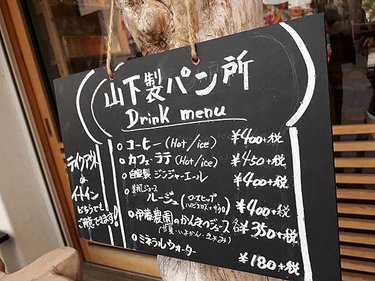 山下製パン所
Drink menu
コーヒー (Hot/ice) ¥400+税
カフェ・ラテ (Hot/ice) ¥450+税
自家製 ジンジャーエール ¥400+税
美肌ジュース
ルージュ (ローズヒップ ¥400+税
伊藤農園のかんきつジュース 各¥350+税
ミネラルウォーター ¥180+税
テイクアウト
&
イートイン
どちらでも
ご用意できます!